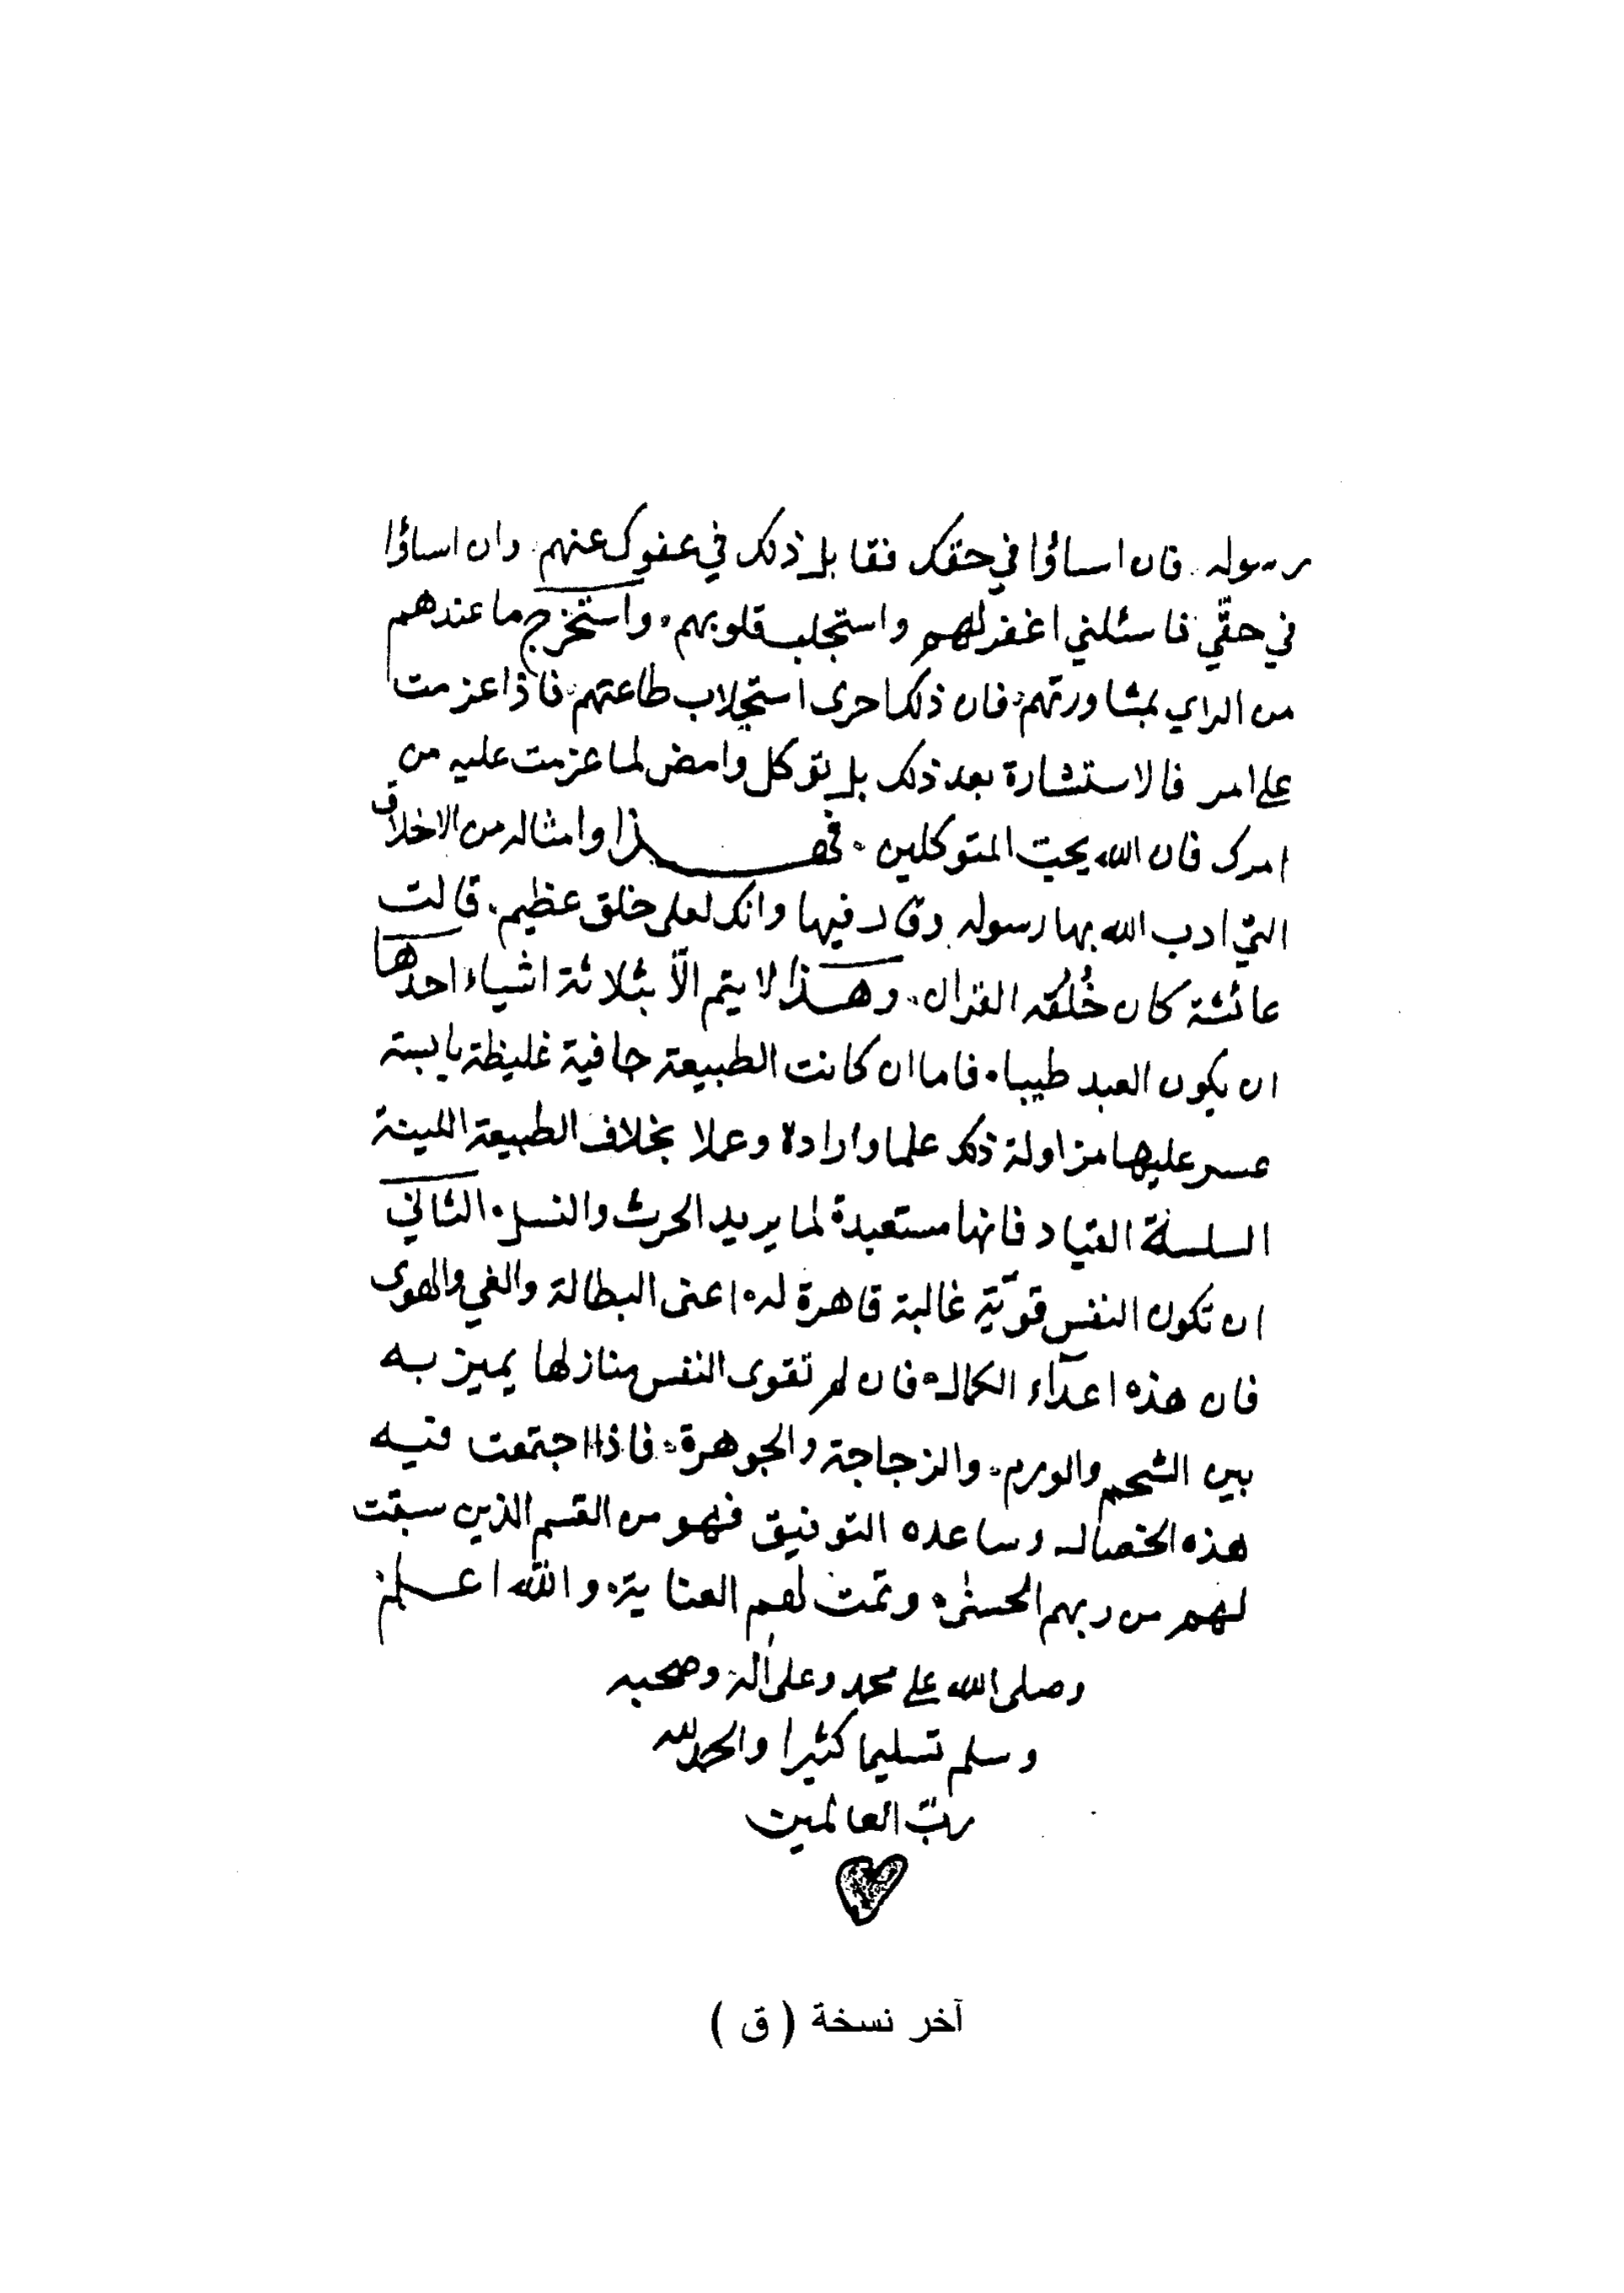 رسوله. فان اساؤا في حقك فقابل ذلك في عفوك عنهم. وان اساؤا
في حقّي فاسئلني اغفر لهم واستجلب قلوبهم. واستخرج ما عندهم
من الراي بمشاورتهم. فان ذلك احرى استجلاب طاعتهم. فاذا عزمت
على امر فالاستشارة بعد ذلك بل توكل وامض لما عزمت عليه من
امرك فان الله يحب المتوكلين. فهذا وامثاله من الاخلاق
التي ادب الله بها رسوله وقال فيها وانك لعلى خلق عظيم. قالت
عائشة كان خُلُقه القران. وهذا لا يتم الّا بثلاثة اشياء احدها
ان يكون العبد طيبا. فاما ان كانت الطبيعة جافية غليظة يابسة
عسر عليها مزاولة ذلك علما وارادة وعملا بخلاف الطبيعة اللينة
السلسلة القياد فانها مستعبدة لما يريد الحرث والنسل. الثاني
ان تكون النفس قويّة غالبة قاهرة له. اعنى البطالة والغي والهوى
فان هذه اعدآء الكمال. فان لم تقوى النفس منازلها يميز به
بين الشحم والورم. والزجاجة والجوهرة. فاذا اجتمعت فيه
هذه الخصال وساعده التوفيق فهو من القسم الذين سبقت
لهم من ربهم الحسنى. وتمت لهم العناية. والله اعلم
وصلى الله على محمد وعلى اله وصحبه
وسلم تسليما كثيرا والحمد لله
ربّ العالمين
آخر نسخة ( ق )